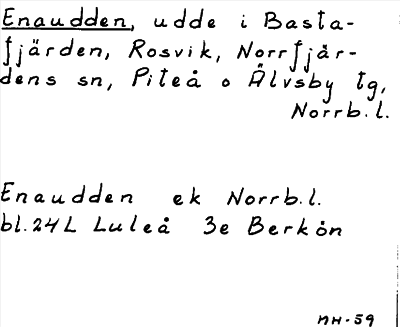 Enaudden, udde i Basta-
fjärden, Rosvik, Norrfjär-
dens sn, Piteå o Älvsby tg,
Norrb.l.
Enaudden ek Norrb.l.
bl.24L Luleå 3e Berkön
MH-59